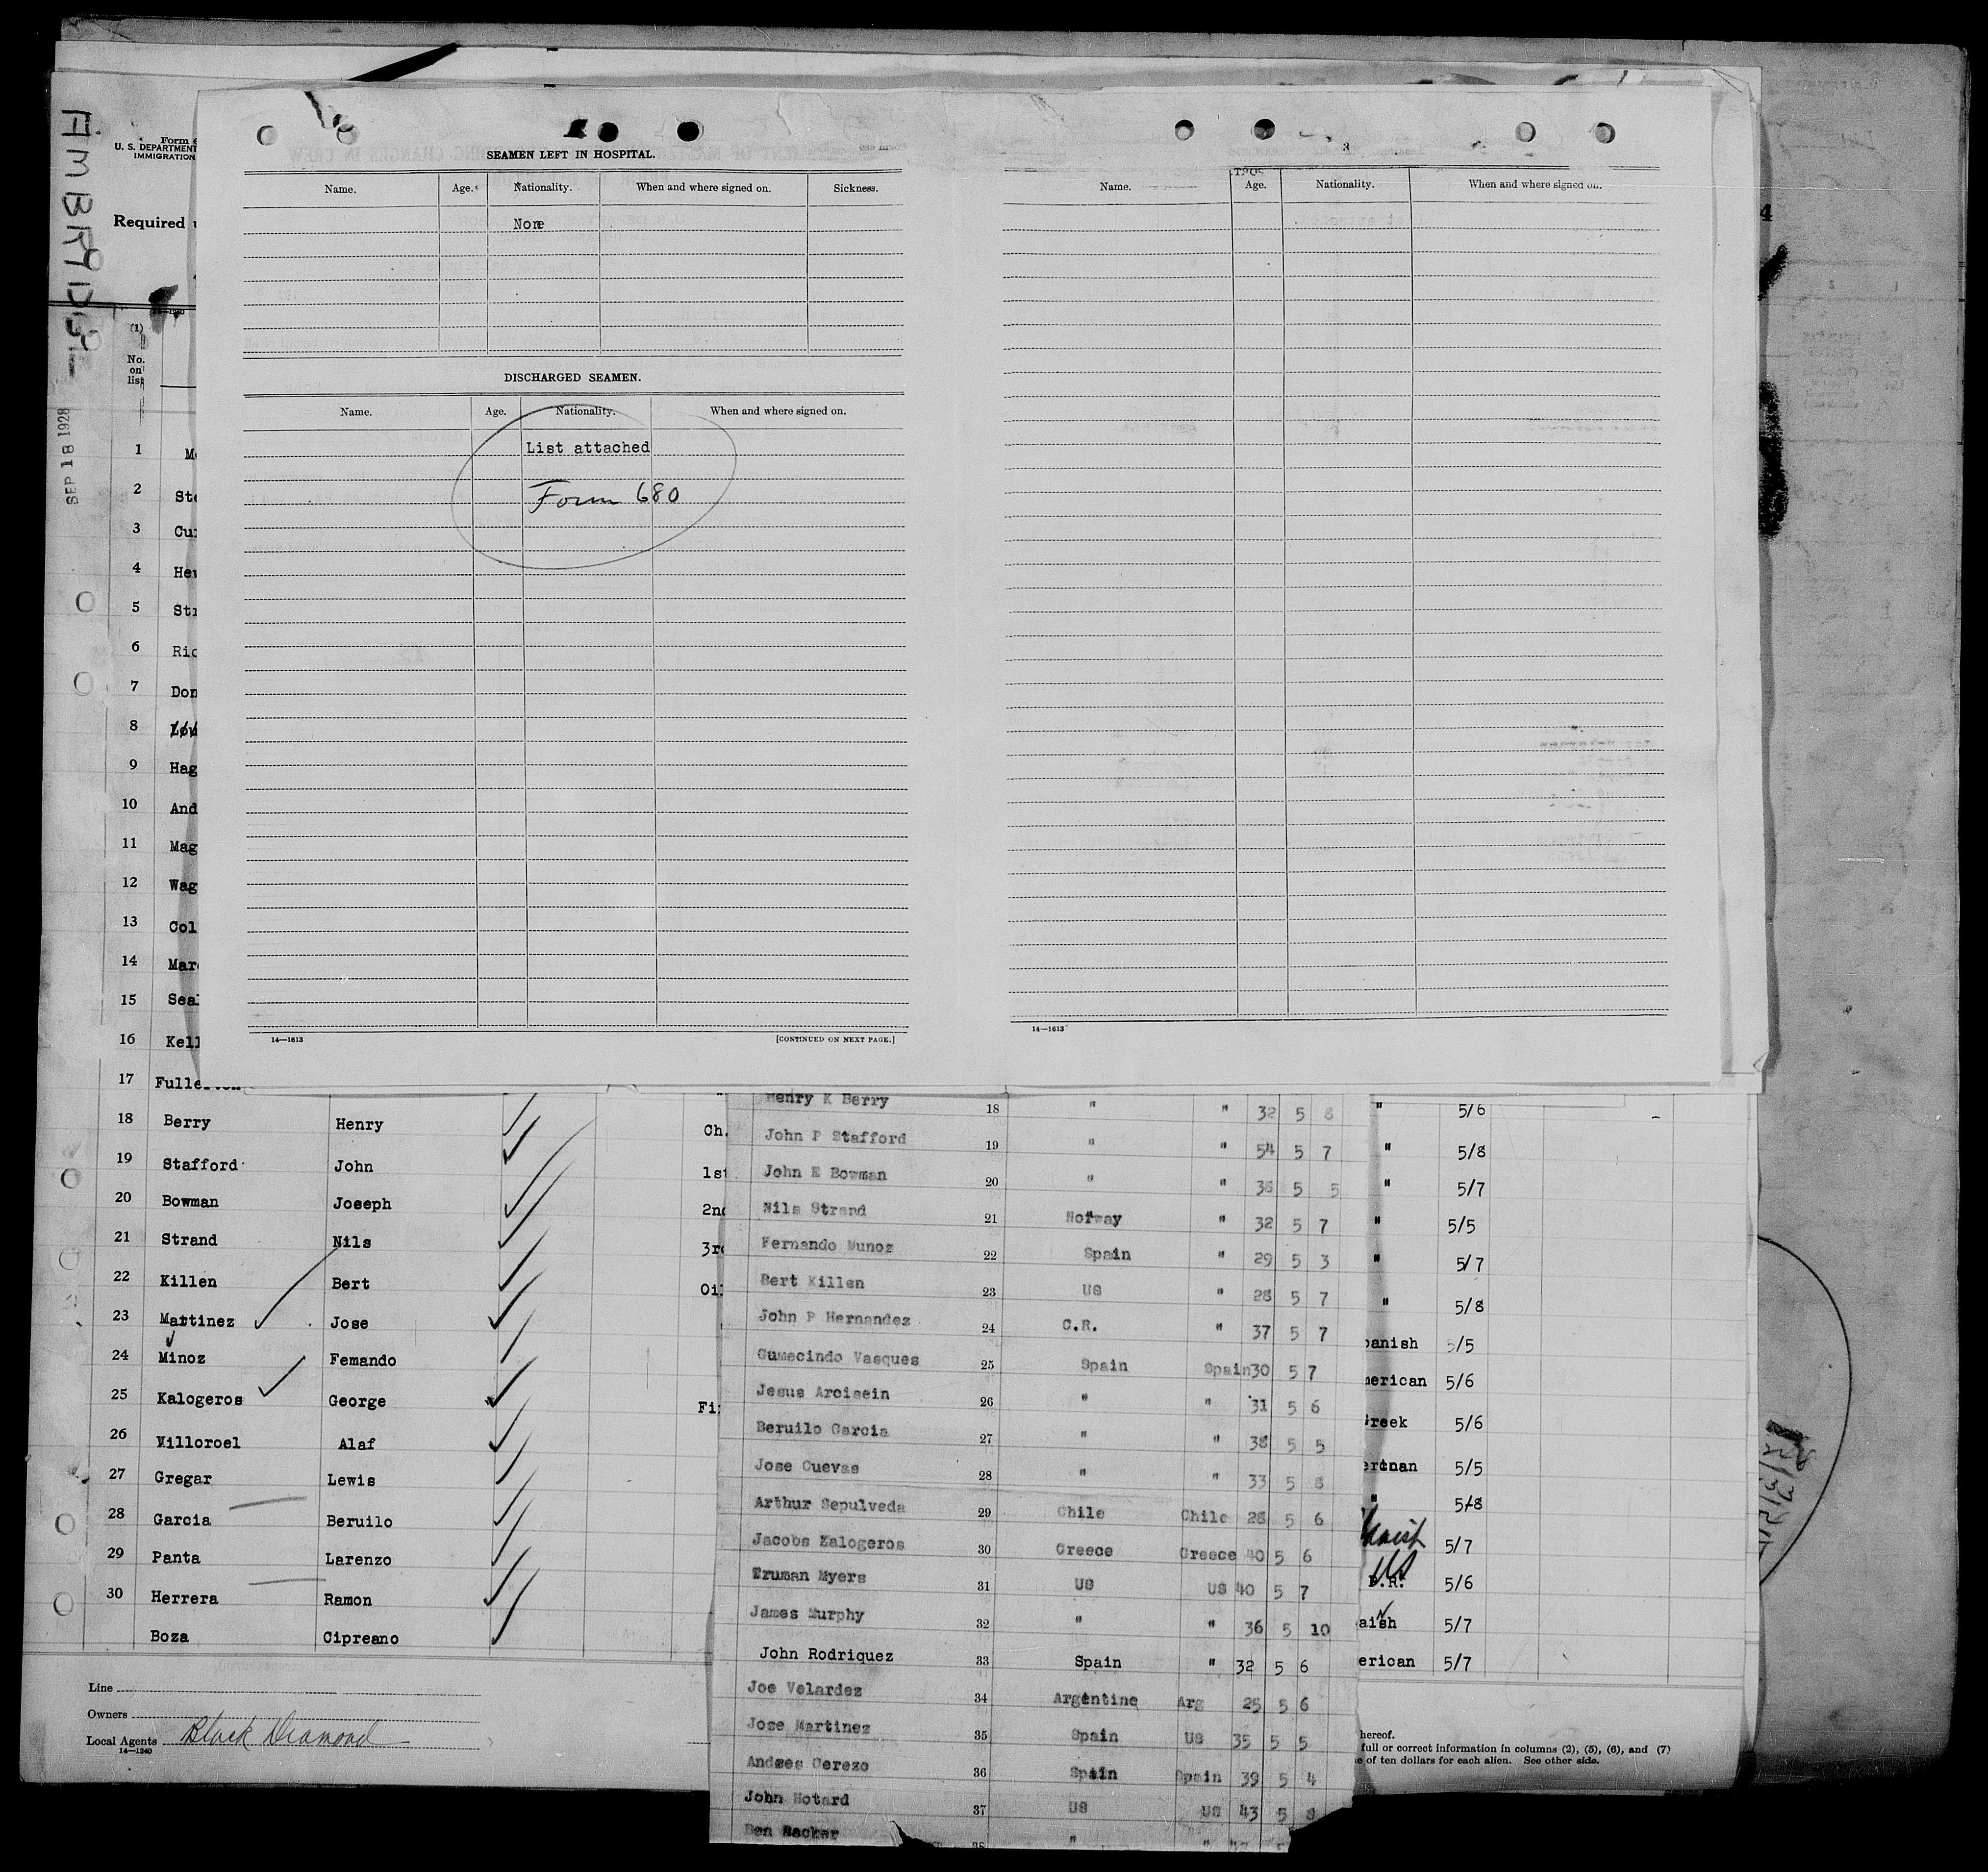 AMBRIDGE
SEP 18 1928
Form 6
U. S. DEPARTMENT
IMMIGRATION
Required
(1)
No. on list
1 Mo
2 Ste
3 Cur
4 Hew
5 Str
6 Ric
7 Don
8 Low
9 Hag
10 And
11 Mag
12 Wag
13 Col
14 Mar
15 Seal
16 Kell
17 Fullerton
18 Berry Henry Ch.
19 Stafford John 1st
20 Bowman Joseph 2nd
21 Strand Nils 3rd
22 Killen Bert Oil
23 Martinez Jose
24 Minoz Femando
25 Kalogeros George Fi
26 Villoroel Alaf
27 Gregar Lewis
28 Garcia Beruilo
29 Panta Larenzo
30 Herrera Ramon
Boza Cipreano
Line
Owners
Local Agents Black Diamond
14—1240
SEAMEN LEFT IN HOSPITAL.
Name. Age. Nationality. When and where signed on. Sickness.
None
DISCHARGED SEAMEN.
Name. Age. Nationality. When and where signed on.
List attached
Form 680
14—1613 [CONTINUED ON NEXT PAGE.]
3
Name. Age. Nationality. When and where signed on.
14—1613
4
Henry K Berry 18 " " 32 5 8
John P Stafford 19 " " 54 5 7
John E Bowman 20 " " 38 5 5
Nils Strand 21 Norway " 32 5 7
Fernando Munoz 22 Spain " 29 5 3
Bert Killen 23 US " 28 5 7
John P Hernandez 24 C.R. " 37 5 7
Gumecindo Vasques 25 Spain Spain 30 5 7
Jesus Arcisein 26 " " 31 5 6
Beruilo Garcia 27 " " 38 5 5
Jose Cuevas 28 " " 33 5 8
Arthur Sepulveda 29 Chile Chile 28 5 6
Jacobs Kalogeros 30 Greece Greece 40 5 6
Truman Myers 31 US US 40 5 7
James Murphy 32 " " 36 5 10
John Rodriquez 33 Spain " 32 5 6
Joe Velardez 34 Argentine Arg 25 5 6
Jose Martinez 35 Spain US 35 5 5
Andres Cerezo 36 Spain Spain 39 5 4
John Hotard 37 US US 43 5 8
Ben 38 " "
" 5/6
" 5/8
" 5/7
" 5/5
" 5/7
" 5/8
panish 5/5
merican 5/6
Greek 5/6
5/5
" 5/8
5/7
P.R. US 5/6
5/7
erican 5/7
hereof.
full or correct information in columns (2), (5), (6), and (7)
e of ten dollars for each alien. See other side.